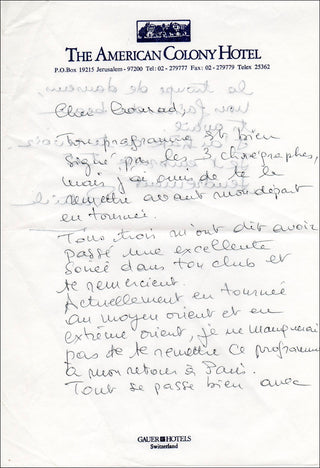 THE AMERICAN COLONY HOTEL
P.O.Box 19215 Jerusalem - 97200 Tel: 02 - 279777 Fax: 02 - 279779 Telex 25362
Cher Conrad,
Ton programme a bien
signé par les 3 chorégraphes,
mais j'ai omis de te le
remettre avant mon départ
en tournée.
Tous trois m'ont dit avoir
passé une excellente
soirée dans ton club et
te remercient.
Actuellement en tournée
au moyen orient et en
extrême orient, je ne manquerai
pas de te remettre ce programme
à mon retour à Paris.
Tout se passe bien avec
GAUER HOTELS
Switzerland